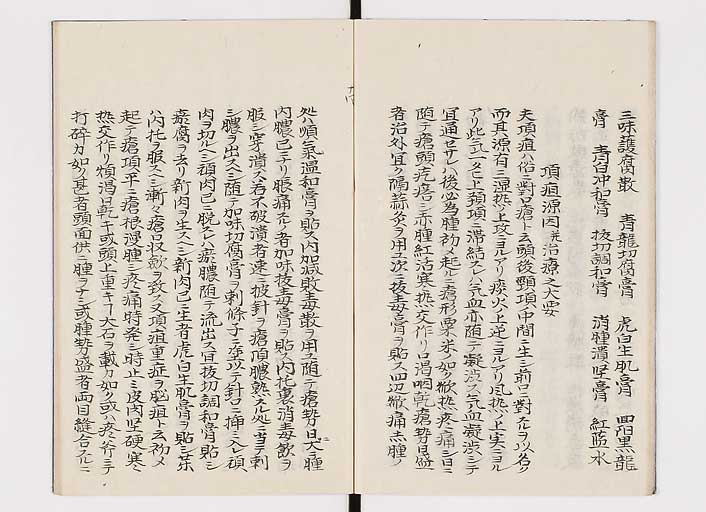 三味護腐散 青龍切腐膏 虎白生肌膏 四黒龍
膏 青白冲和膏 抜切調和膏 消腫潰堅膏 紅藍水
項疽源因并治療之大要
夫項疽ハ俗ニ對口瘡ト云頭後頸項ノ中間ニ生シ前口ニ對スルヲ以名ク
而其源有三湿熱ノ上攻ニヨルアリ痰火ノ上逆ニヨルアリ風熱ノ上実ニヨル
アリ此三ノ一タヒ上頚項ニ滞結スレハ気血亦随テ凝渋ス気血凝渋シテ
宜通セサレハ後必為腫初メ起ルニ瘡形粟米ノ如ク微熱疼痛シ日ニ
随テ瘡頭疙瘩シ赤腫紅活寒熱交作リ口渇咽乾瘡勢日盛
者治外宜ク隔蒜灸ヲ用ユ次ニ抜毒膏ヲ貼ス四辺微痛赤腫ノ
処ハ順氣温和膏ヲ貼ス内加減敗毒散ヲ用ユ随テ瘡勢日大ニ腫
内膿已ニナリ脹痛スル者加味抜毒膏ヲ貼ス内托裏消毒飲ヲ
服シ穿潰ス若不破潰者速ニ披針ヲ瘡頂膿熟スル処ニ当テ刺
シ膿ヲ出スニ随テ加味切腐膏ヲ刺條子ニ塗以テ針口ニ挿ミ入レ頑
肉ヲ切ルヘシ頑肉已ニ脱スレハ瘀膿随テ流出ス宜抜切調和膏ヲ貼シ
瘀腐ヲ去リ新肉ヲ生スヘシ新肉已ニ生者虎白生肌膏ヲ貼シ茱
ハ内托ヲ服スヘシ漸々瘡口収歛ヲ致ス又項疽重症ヲ脳疽ト云初メ
起テ瘡項平ニ瘡根漫腫シ疼痛時発シ時止ミ皮肉堅硬寒
熱交作リ煩渇口乾キ或頭上重キコト大石ヲ載カ如ク或ハ疼行シテ
打砕カ如ク甚者頭面供ニ腫ヲナシ或腫勢盛者両目縫合スルニ